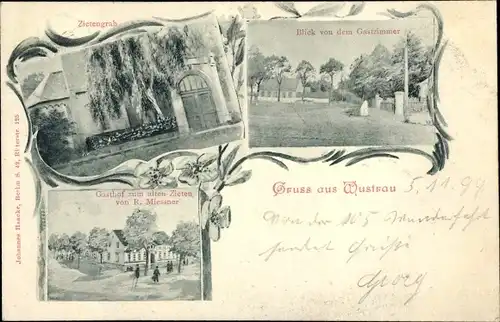 Zietengrab
Blick von dem Gastzimmer
Gasthof zum alten Zieten
von R. Miessner
Gruss aus Wustrau
5.11.99
Von der 105 Wunderfahrt
sendet Grüße
Georg
Johannes Haacke, Berlin S. 42, Ritterstr. 125